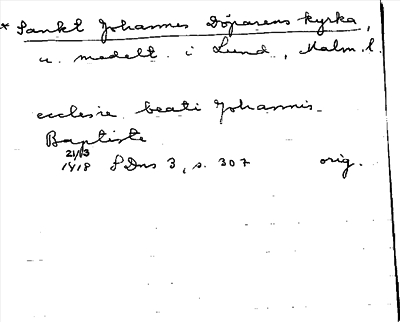 * Sankt Johannes Döparens kyrka,
u. medelt. i Lund, Malm. l.
ecclesie beati Johannis
Baptiste
21/3
1418 SDns 3, s. 307 orig.